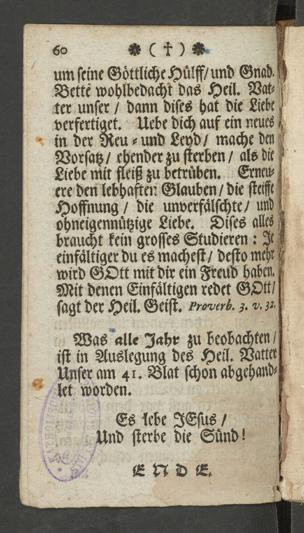 60 ✽ ( † ) ✽
um seine Göttliche Hülff/ und Gnad.
Bette wohlbedacht das Heil. Vat-
ter unser / dann dises hat die Liebe
verfertiget. Uebe dich auf ein neues
in der Reu- und Leyd/ mache den
Vorsatz/ ehender zu sterben/ als die
Liebe mit fleiß zu betrüben. Erneu-
ere den lebhafften Glauben/ die steiffe
Hoffnung / die unverfälschte/ und
ohneigennützige Liebe. Dises alles
braucht kein grosses Studieren : Je
einfältiger du es machest/ desto mehr
wird GOtt mit dir ein Freud haben.
Mit denen Einfältigen redet GOtt/
sagt der Heil. Geist. Proverb. 3. v. 32.
Was alle Jahr zu beobachten/
ist in Auslegung des Heil. Vatter
Unser am 41. Blat schon abgehand-
let worden.
Es lebe JEsus /
Und sterbe die Sünd!
ENDE.